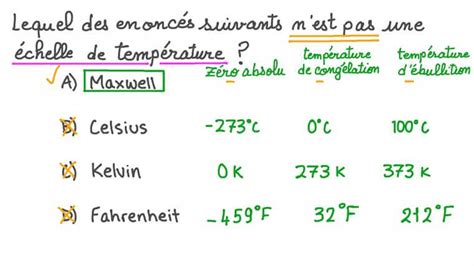 Lequel des enoncés suivants n'est pas une
échelle de température ?
A) Maxwell zéro absolu température de congélation température d'ébullition
B) Celsius -273°C 0°C 100°C
C) Kelvin 0K 273 K 373 K
D) Fahrenheit -459°F 32°F 212°F